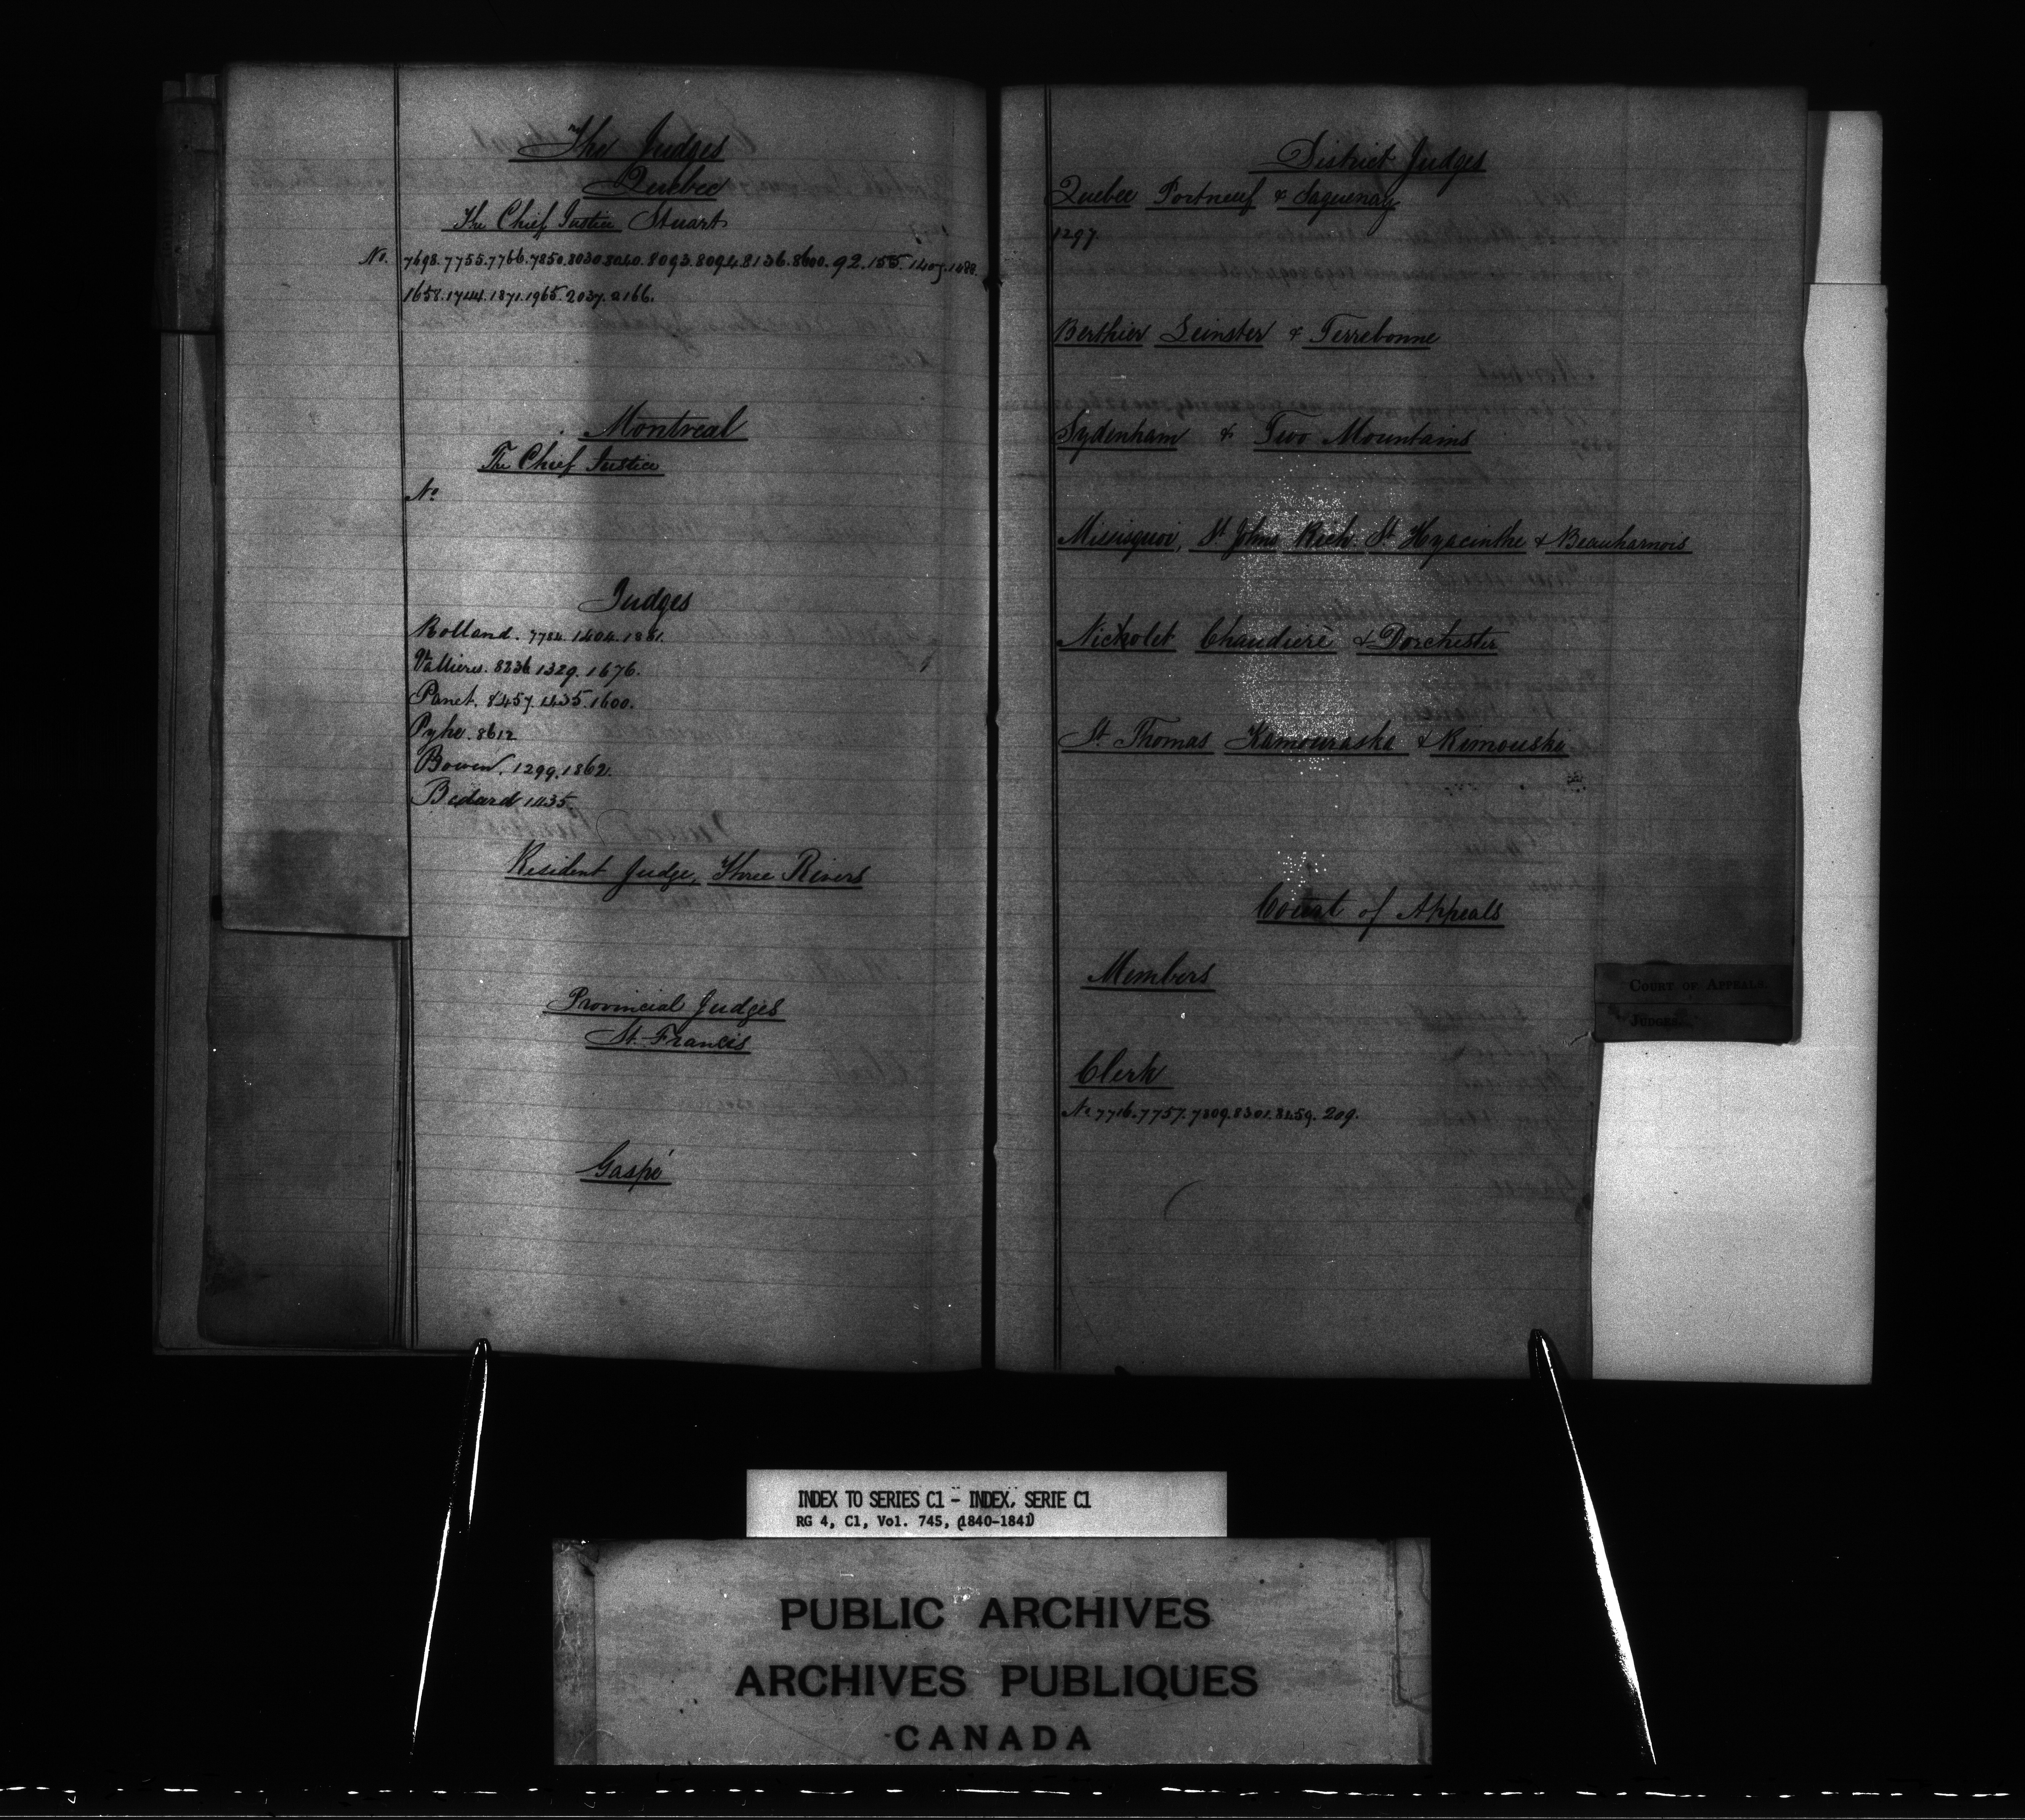 The Judges
Quebec
The Chief Justice Stuart
No. 7698. 7755. 7766. 7850. 8030. 8040. 8093. 8094. 8136. 8600. 92. 155. 1407. 1488.
1658. 1744. 1871. 1965. 2037. 2166.
Montreal
The Chief Justice
No
Judges
Rolland. 7784. 1404. 1881.
Vallieres. 8236 1329. 1676.
Panet. 8457. 1435. 1600.
Pyke. 8612
Bowen. 1299. 1862.
Bedard 1435.
Resident Judge, Three Rivers
Provincial Judges
St. Francis
Gaspé
District Judges
Quebec Portneuf & Saguenay
1297.
Berthier Leinster & Terrebonne
Sydenham & Two Mountains
Missisquoi, St Johns Rich: St Hyacinthe & Beauharnois
Nicholet Chaudiere & Dorchester
St. Thomas Kamouraska & Rimouska
Court of Appeals
Members
Clerk
No 7716. 7757. 7809. 8301. 8459. 209.
COURT OF APPEALS.
JUDGES.
INDEX TO SERIES C1 - INDEX, SERIE C1
RG 4, C1, Vol. 745, (1840-1841)
PUBLIC ARCHIVES
ARCHIVES PUBLIQUES
CANADA